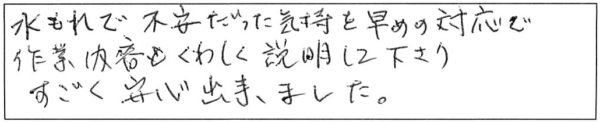 水もれで不安だった気持を早めの対応で
作業内容もくわしく説明して下さり
すごく安心出来ました。